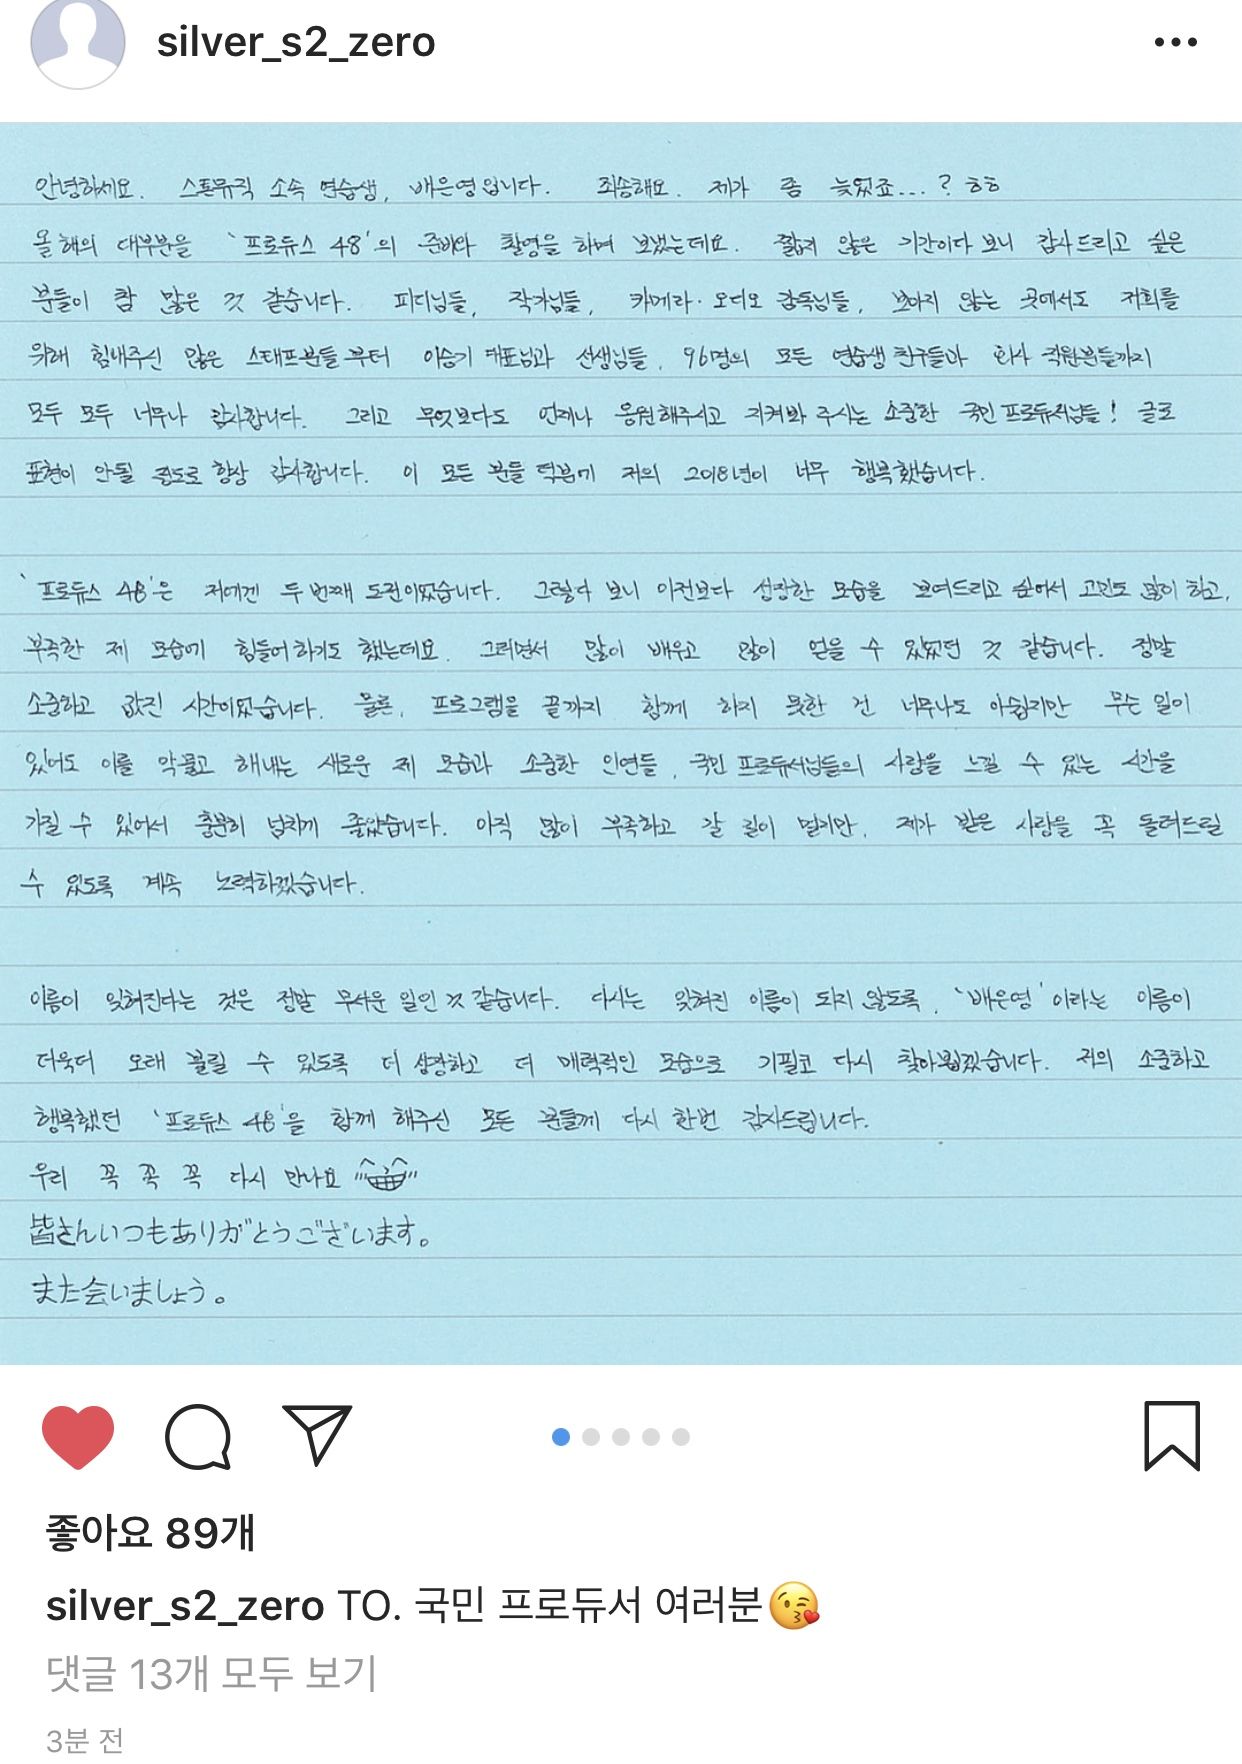 silver_s2_zero
안녕하세요. 스톤뮤직 소속 연습생, 배은영입니다. 죄송해요. 제가 좀 늦었죠...? ㅎㅎ
올 해의 대부분을 '프로듀스 48'의 준비와 촬영을 하며 보냈는데요. 짧지 않은 기간이다 보니 감사드리고 싶은
분들이 참 많은 것 같습니다. 피디님들, 작가님들, 카메라·오디오 감독님들, 보이지 않는 곳에서도 저희를
위해 힘내주신 많은 스태프분들부터 이승기 대표님과 선생님들, 96명의 모든 연습생 친구들과 회사 직원분들까지
모두 모두 너무나 감사합니다. 그리고 무엇보다도 언제나 응원해주시고 지켜봐 주시는 소중한 국민 프로듀서님들! 글로
표현이 안될 정도로 항상 감사합니다. 이 모든 분들 덕분에 저의 2018년이 너무 행복했습니다.
'프로듀스 48'은 저에겐 두 번째 도전이었습니다. 그렇다 보니 이전보다 성장한 모습을 보여드리고 싶어서 고민도 많이 하고,
부족한 제 모습에 힘들어하기도 했는데요. 그러면서 많이 배우고 많이 얻을 수 있었던 것 같습니다. 정말
소중하고 값진 시간이었습니다. 물론, 프로그램을 끝까지 함께 하지 못한 건 너무나도 아쉽지만 무슨 일이
있어도 이를 악물고 해내는 새로운 제 모습과 소중한 인연들, 국민 프로듀서님들의 사랑을 느낄 수 있는 시간을
가질 수 있어서 충분히 넘치게 좋았습니다. 아직 많이 부족하고 갈 길이 멀지만, 제가 받은 사랑을 꼭 돌려드릴
수 있도록 계속 노력하겠습니다.
이름이 잊혀진다는 것은 정말 무서운 일인 것 같습니다. 다시는 잊혀진 이름이 되지 않도록, '배은영'이라는 이름이
더욱더 오래 불릴 수 있도록 더 성장하고 더 매력적인 모습으로 기필코 다시 찾아뵙겠습니다. 저의 소중하고
행복했던 '프로듀스 48'을 함께 해주신 모든 분들께 다시 한번 감사드립니다.
우리 꼭 꼭 꼭 다시 만나요
皆さんいつもありがとうございます。
また会いましょう。
좋아요 89개
silver_s2_zero TO. 국민 프로듀서 여러분😘
댓글 13개 모두 보기
3분 전